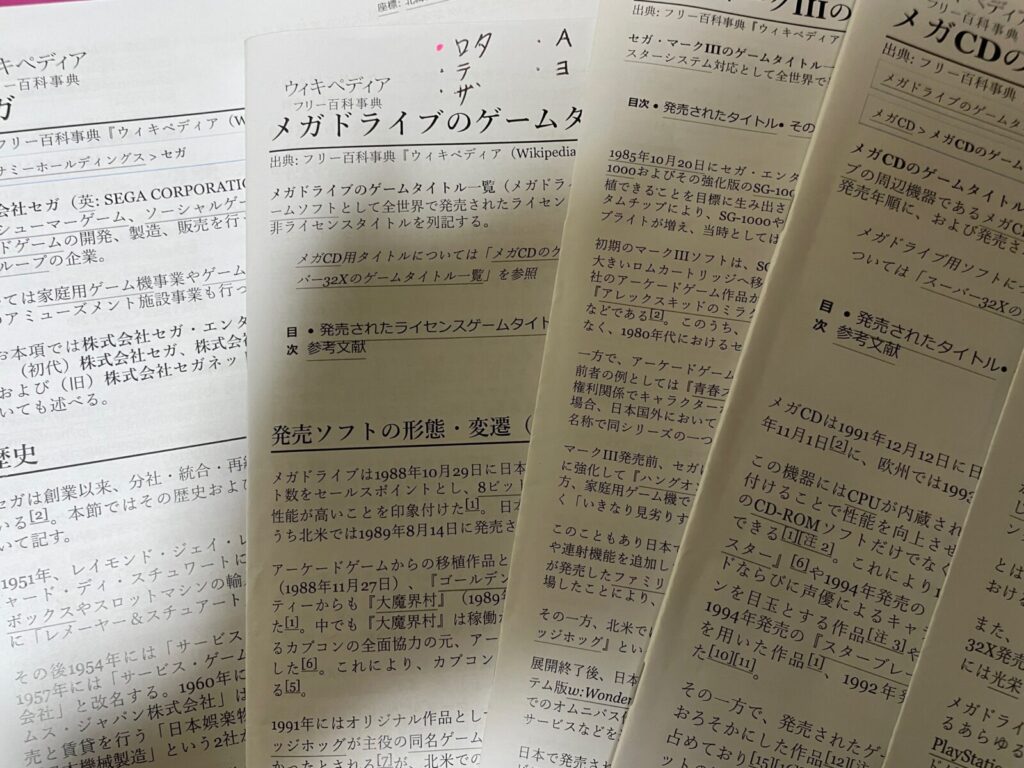 座標: 北緯
キペディア
ー百科事典
ガ
フリー百科事典『ウィキペディア（W
サミーホールディングス > セガ
会社セガ（英: SEGA CORPORATIO
シューマーゲーム、ソーシャルゲー
ドゲームの開発、製造、販売を行っ
ループの企業。
ては家庭用ゲーム機事業やゲーム
のアミューズメント施設事業も行っ
お本項では株式会社セガ・エンタ
（初代）株式会社セガ、株式会
および（旧）株式会社セガネッ
いても述べる。
歴史
セガは創業以来、分社・統合・再編
いる[2]。本節ではその歴史およ
いて記す。
1951年、レイモンド・ジェイ・レ
ャード・ディ・スチュワートに
ボックスやスロットマシンの輸
に「レメーヤー＆スチュアート
その後1954年には「サービス
1957年には「サービス・ゲーム
会社」と改名する。1960年に
ムス・ジャパン株式会社」は
売と賃貸を行う「日本娯楽物
本機械製造」という2社か
・ロタ ・A
・テ ・ヨ
・ザ
ウィキペディア
フリー百科事典
メガドライブのゲームタ
出典: フリー百科事典『ウィキペディア（Wikipedia
メガドライブのゲームタイトル一覧（メガドラ
ームソフトとして全世界で発売されたライセン
非ライセンスタイトルを列記する。
メガCD用タイトルについては「メガCDのゲ
パー32Xのゲームタイトル一覧」を参照
目次 • 発売されたライセンスゲームタイト
参考文献
発売ソフトの形態・変遷（
メガドライブは1988年10月29日に日本
ト数をセールスポイントとし、8ビット
性能が高いことを印象付けた[1]。日本
うち北米では1989年8月14日に発売さ
アーケードゲームからの移植作品と
（1988年11月27日）、『ゴールデン
ティーからも『大魔界村』（1989年
た[1]。中でも『大魔界村』は稼働か
るカプコンの全面協力の元、アー
した[6]。これにより、カプコン
る[5]。
1991年にはオリジナル作品とし
ッジホッグが主役の同名ゲーム
かったとされる[7]が、北米での
IIIの
出典: フリー百科事典『ウィキペディア
セガ・マークIIIのゲームタイトル
スターシステム対応として全世界で
目次 • 発売されたタイトル • その
1985年10月20日にセガ・エンタ
1000およびその強化版のSG-100
植できることを目標に生み出さ
タムチップにより、SG-1000や
ブライトが増え、当時としては
初期のマークIIIソフトは、SG
大きいロムカートリッジへ移
社のアーケードゲーム作品か
『アレックスキッドのミラク
などである[2]。このうち、
なく、1980年代におけるセ
一方で、アーケードゲーム
前者の例としては『青春ス
権利関係でキャラクター
場合、日本国外において
名称で同シリーズの一つ
マークIII発売前、セガは
に強化して『ハングオン
方、家庭用ゲーム機で
く「いきなり見劣りす
このこともあり日本で
や連射機能を追加し
が発売したファミリ
場したことにより、
その一方、北米では
ッジホッグ』とい
展開終了後、日本
テム版w:Wonder
でのオムニバス作
サービスなどを
日本で発売され
キペディア
フリー百科事典
メガCDの
出典: フリー百科事典
メガドライブのゲーム
メガCD > メガCDのゲーム
メガCDのゲームタイトル
ブの周辺機器であるメガCD
発売年順に、および発売さ
メガドライブ用ソフトにつ
ついては「スーパー32Xの
目次 • 発売されたタイトル •
参考文献
メガCDは1991年12月12日に日
年11月1日[2]に、欧州では1993
この機器にはCPUが内蔵され
付けることで性能を向上させ
のCD-ROMソフトだけでなく
できる[1][注 2]。これにより1
スター』[6]や1994年発売の
ドならびに声優によるキャラ
ンを目玉とする作品[注 3]や
1994年発売の『スターブレー
を用いた作品[1]、1992年発
た[10][11]。
その一方で、発売されたゲ
おろそかにした作品[12][注
占めており[15][16]
とは
おける
また、
32X発売
には光栄
メガドライ
るあらゆる
PlayStation